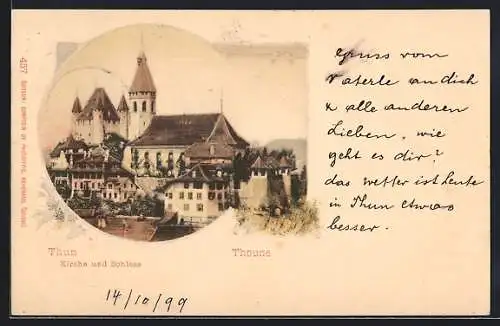 Gruss vom
Vaterle an dich
& alle anderen
Lieben, wie
geht es dir?
das wetter ist heute
in Thun etwas
besser.
Thun
Thoune
Kirche und Schloss
14/10/99
457